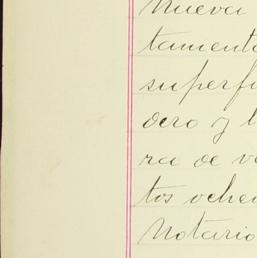 Nueva
tamento
superfi
dero y l
ra de va
tos ochen
Notario